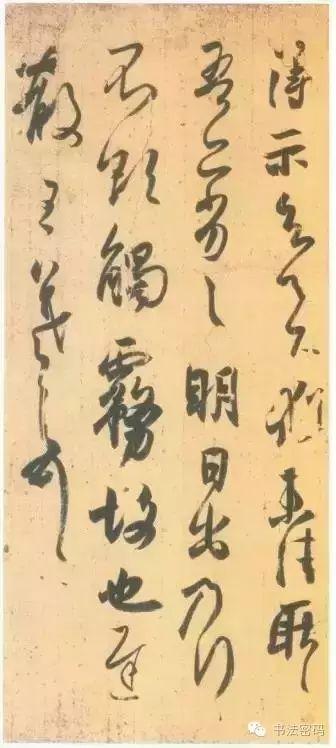 得示知足下猶未佳耿耿
吾亦劣劣明日出乃行
不欲觸霧故也遲
散王羲之頓首
书法密码